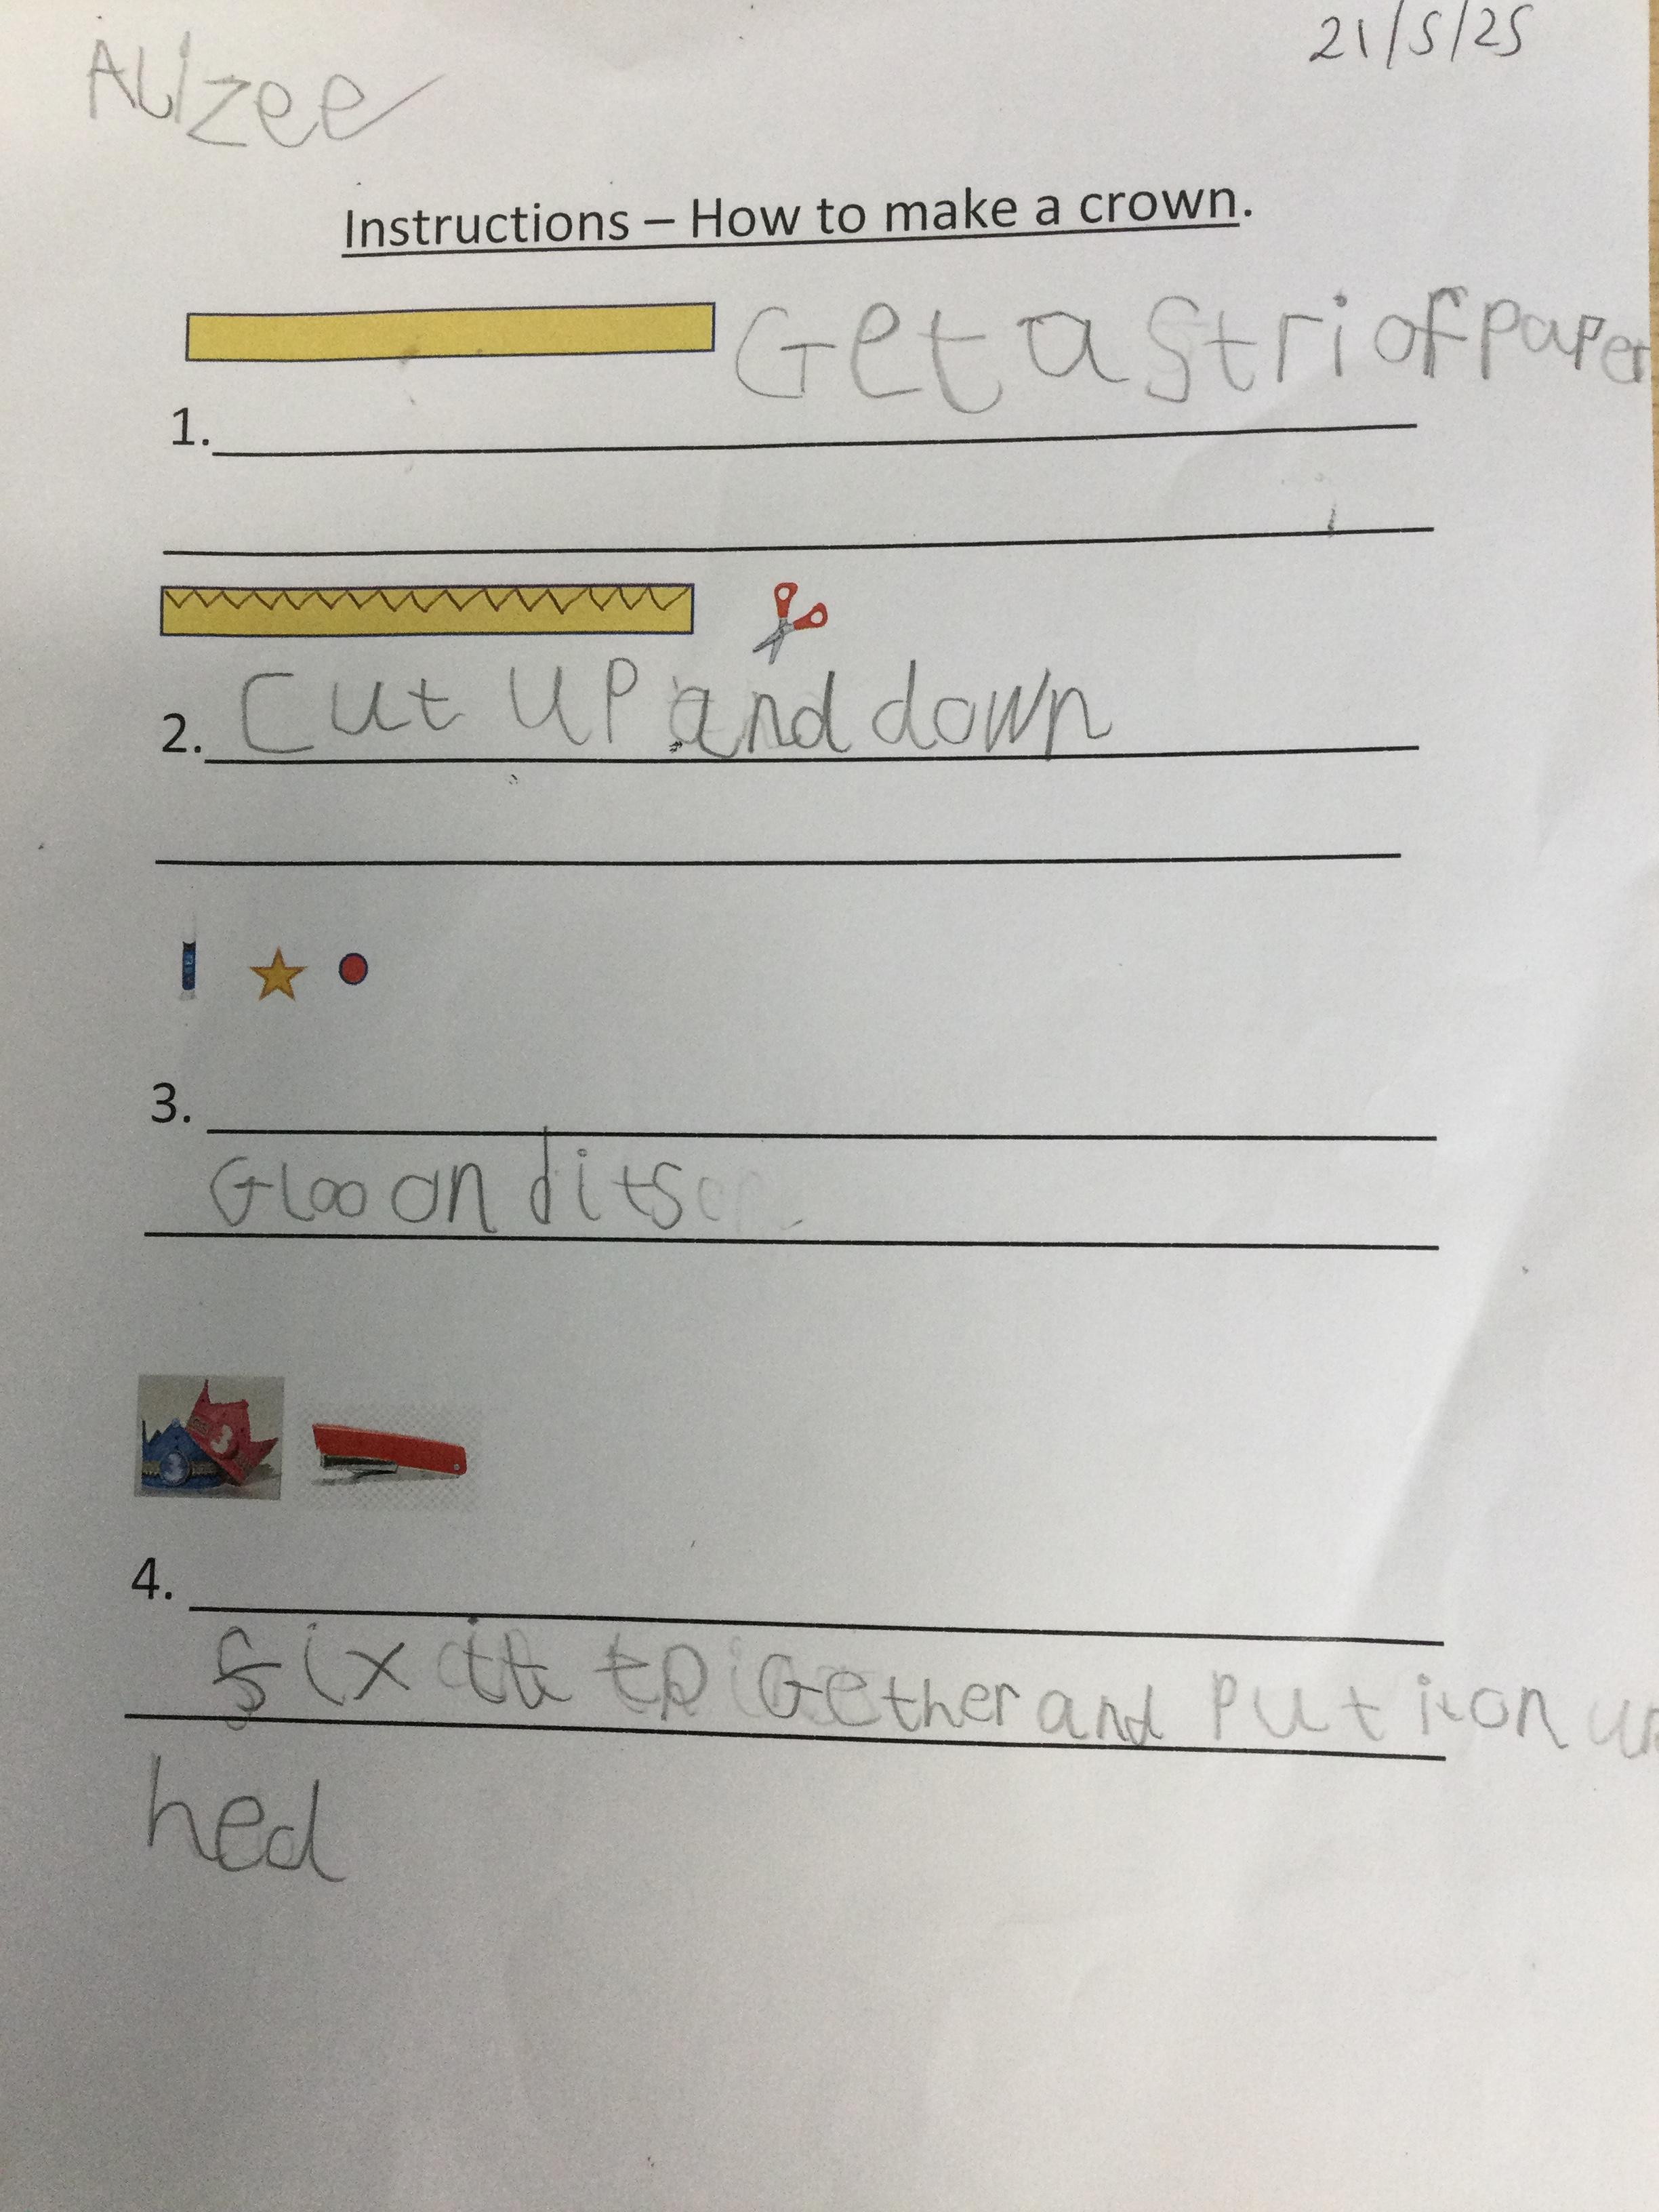 Alizee
21/5/25
Instructions – How to make a crown.
Get a stri of paper
1.
2. Cut up and down
3.
Gloo on dits
4.
fix it to Gether and put it on
hed